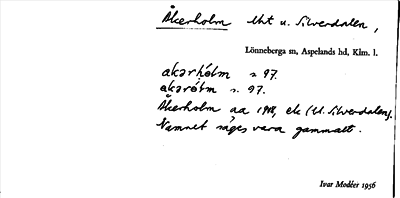 Åkerholm lht u. Silverdalen,
Lönneberga sn, Aspelands hd, Klm. l.
akarhólm s 97.
akarólm s. 97.
Åkerholm aa 1918, ek (U. Silverdalen).
Namnet säges vara gammalt.
Ivar Modéer 1956